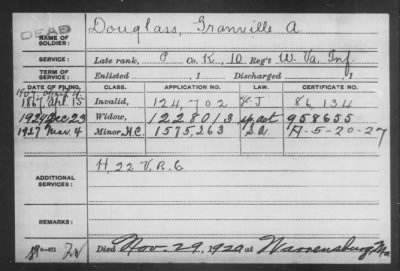 DEAD
NAME OF SOLDIER: Douglass, Granville A
SERVICE: Late rank, P Co. K, 10 Reg't W. Va. Inf.
TERM OF SERVICE: Enlisted , 1 Discharged , 1
DATE OF FILING. CLASS. APPLICATION NO. LAW. CERTIFICATE NO.
1867 Apl 15 Invalid, 124,702 86,134
1920 Dec 23 Widow, 1228013 958655
1927 Mar. 4 Minor, H.C. 1575,263 S.A. A-5-20-27
ADDITIONAL SERVICES: H, 22 V.R.C
REMARKS:
Died Nov. 29, 1920 at Warrensburg Mo